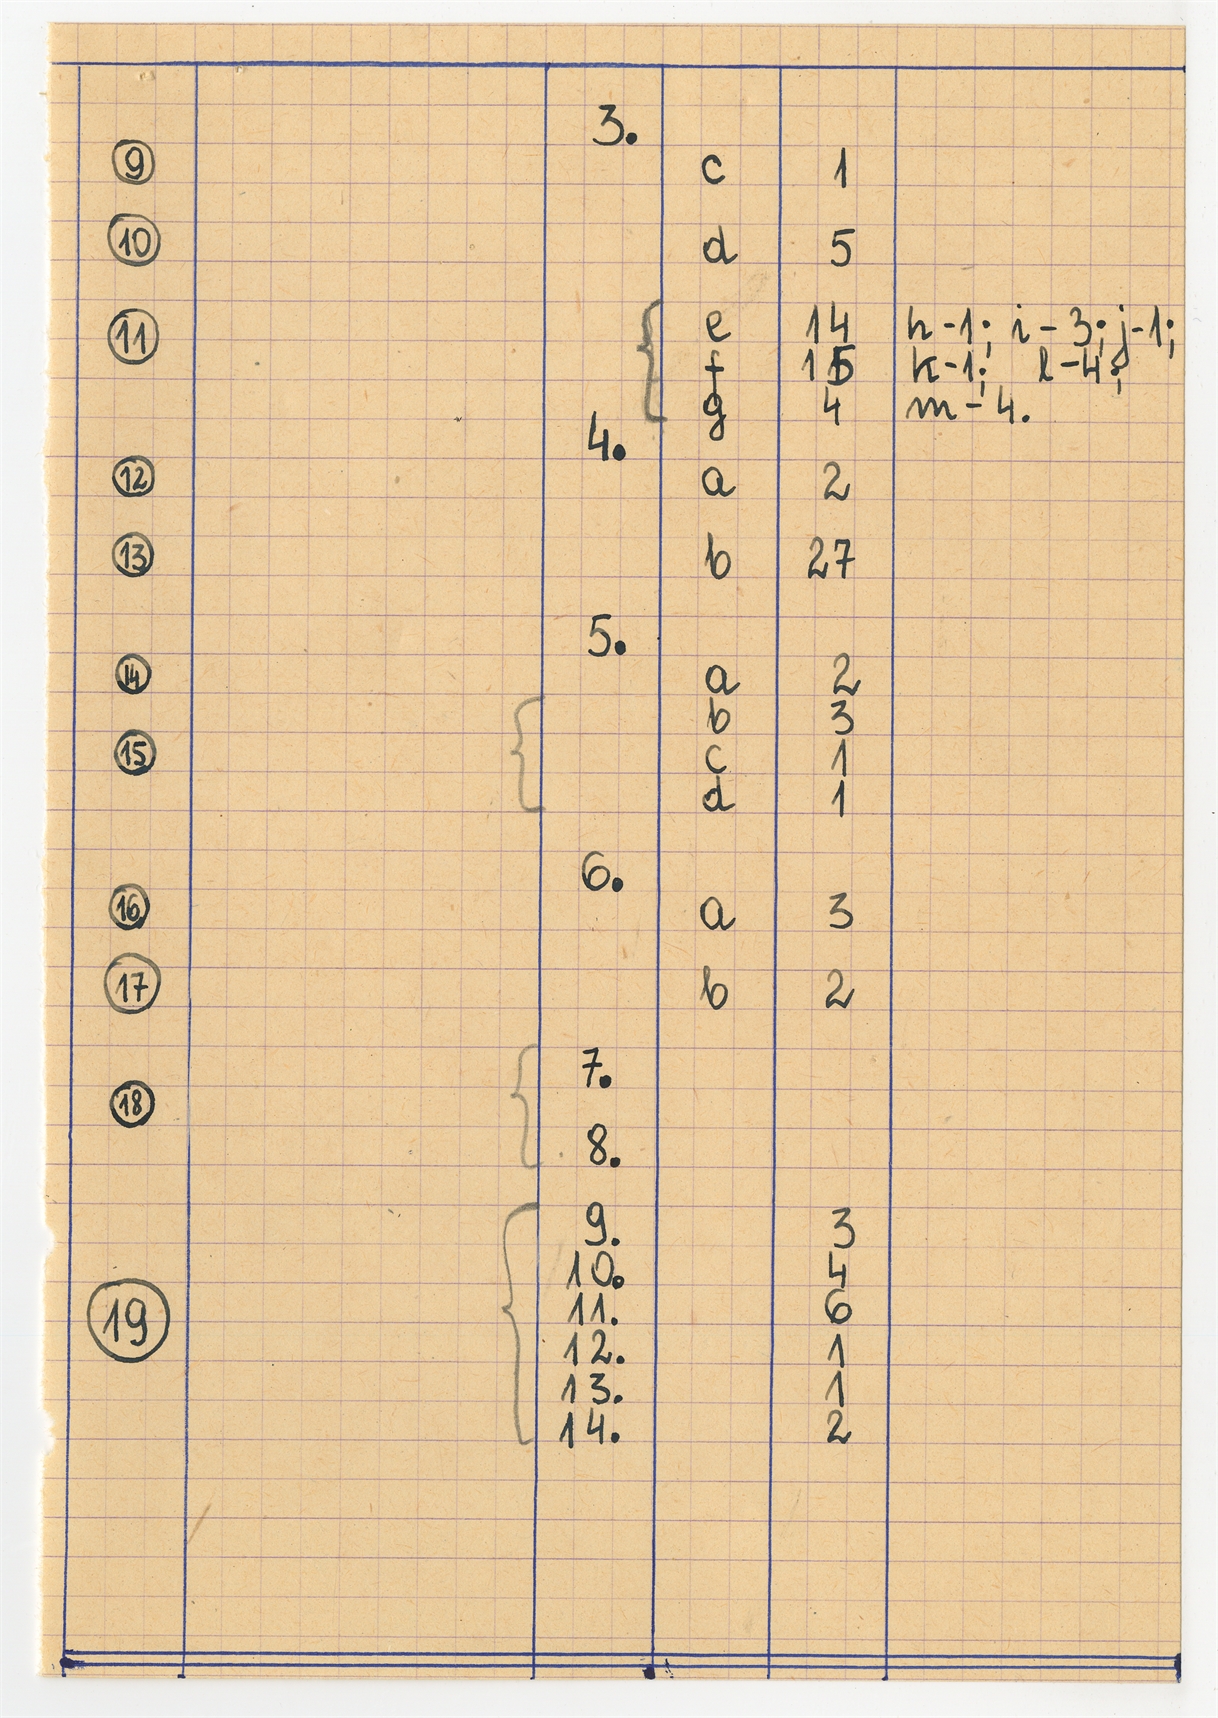 3.
9 c 1
10 d 5
11 e 14 h-1; i-3; j-1;
f 15 k-1; l-4;
g 4 m-4.
4.
12 a 2
13 b 27
5.
14 a 2
b 3
15 c 1
d 1
6.
16 a 3
17 b 2
7.
18
8.
9. 3
10. 4
11. 6
19 12. 1
13. 1
14. 2